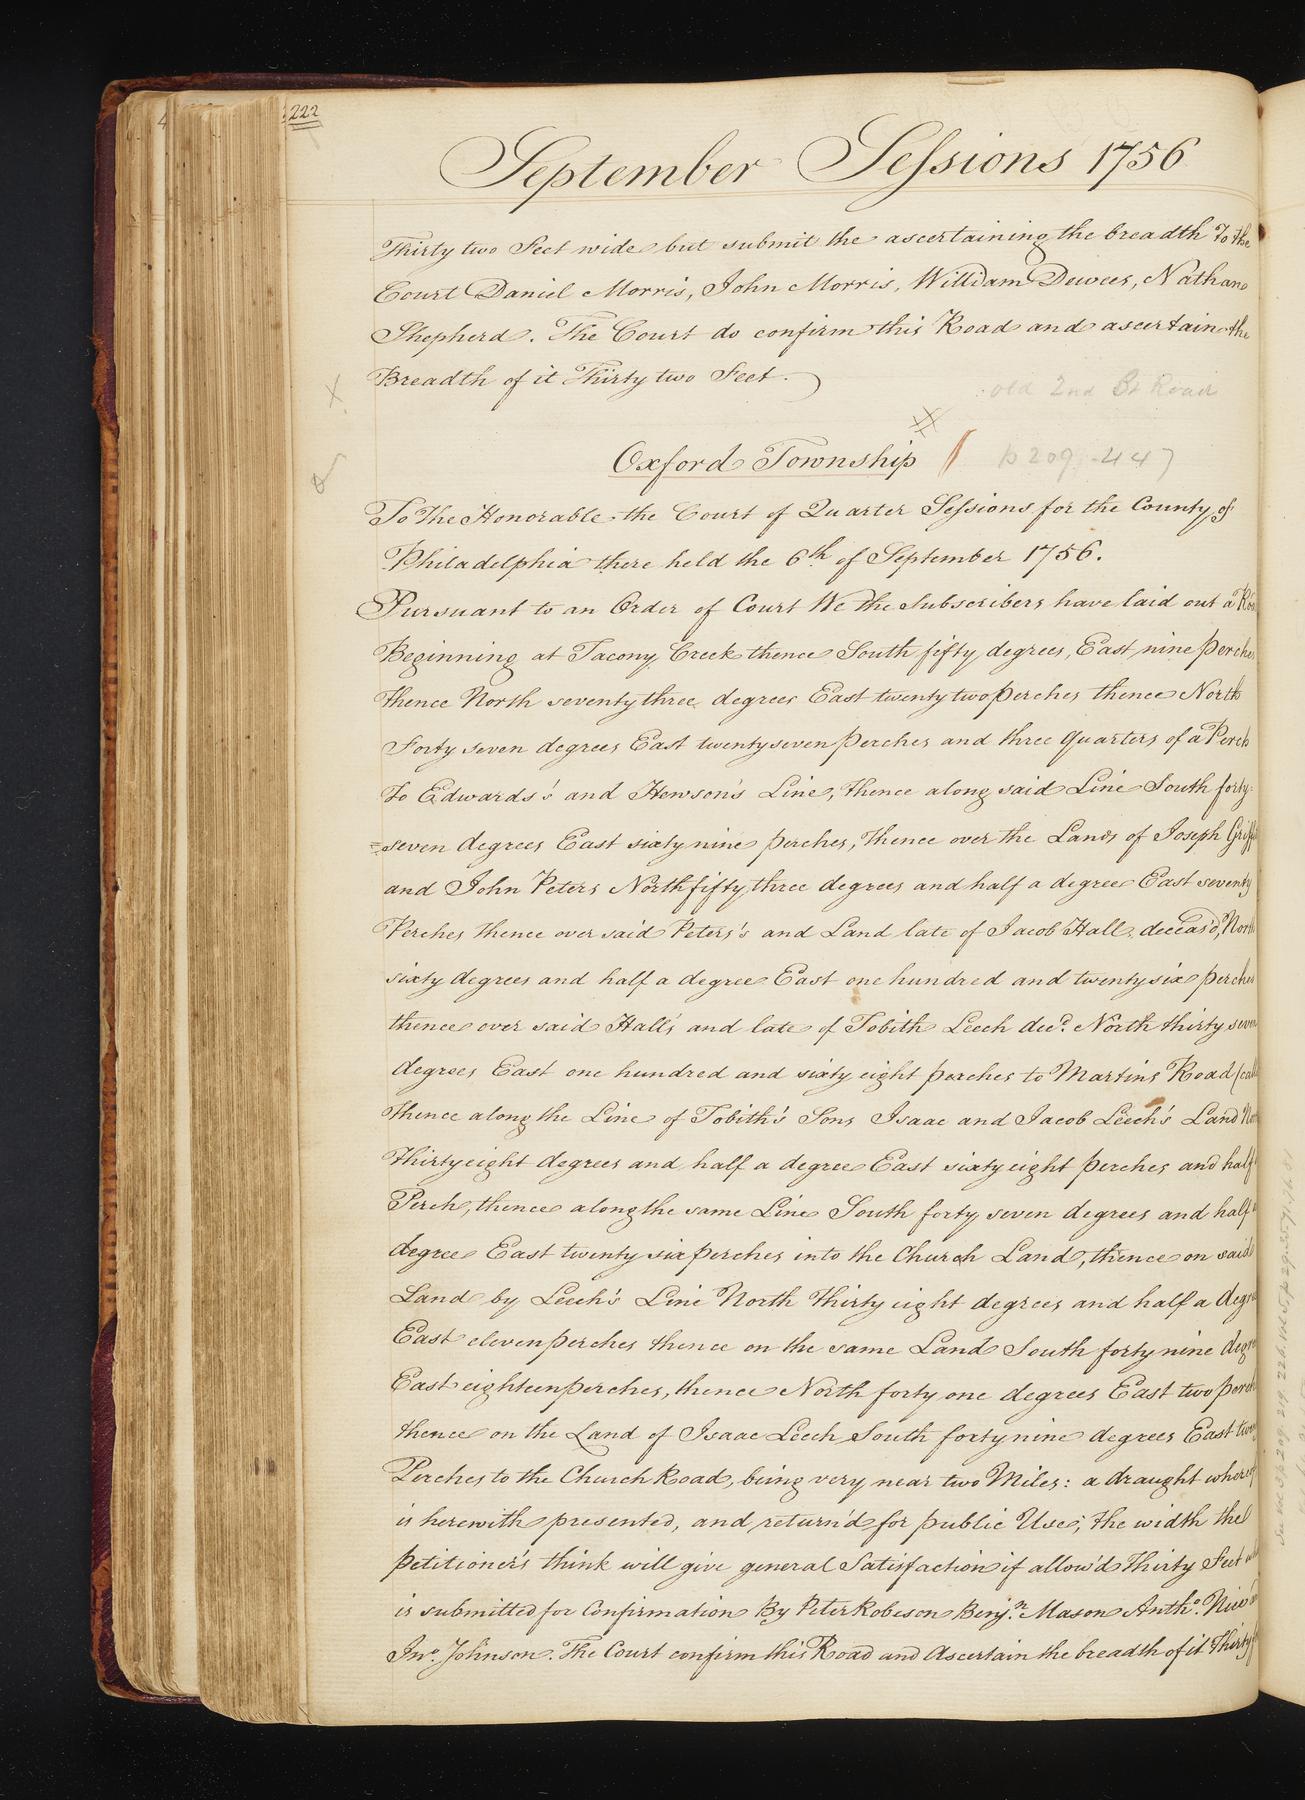 222
September Sessions 1756
Thirty two Feet wide but submit the ascertaining the breadth to the
Court Daniel Morris, John Morris, William Dewees, Nathan
Shepherd. The Court do confirm this Road and ascertain the
Breadth of it Thirty two Feet.
old 2nd St Road
Oxford Township
p 209-447
To The Honorable the Court of Quarter Sessions for the County of
Philadelphia there held the 6th of September 1756.
Pursuant to an Order of Court We the Subscribers have laid out a
Beginning at Tacony Creek thence South fifty degrees, East nine perches
thence North seventy three degrees East twenty two perches thence North
Forty seven degrees East twenty seven perches and three quarters of a Perch
to Edwards's and Hewson's Line, thence along said Line South forty
=seven degrees East sixty nine perches, thence over the Lands of Joseph
and John Peters North fifty three degrees and half a degree East seventy
Perches thence over said Peters's and Land late of Jacob Hall deceas'd, North
sixty degrees and half a degree East one hundred and twenty six perches
thence over said Hall's and late of Tobith Leech decd. North thirty seven
degrees East one hundred and sixty eight perches to Martins Road
thence along the Line of Tobith's Sons Isaac and Jacob Leech's Land
Thirty eight degrees and half a degree East sixty eight perches and half
Perch, thence along the same Line South forty seven degrees and half a
degree East twenty six perches into the Church Land, thence on said
Land by Leech's Line North thirty eight degrees and half a
East eleven perches thence on the same Land South forty nine
East eighteen perches, thence North forty one degrees East two
thence on the Land of Isaac Leech South forty nine degrees East
Perches to the Church Road, being very near two Miles: a draught whereof
is herewith presented, and return'd for public Use; the width the
petitioner's think will give general Satisfaction if allow'd Thirty Feet
is submitted for Confirmation By Peter Robeson Benjn. Mason Anthō.
Jno. Johnson. The Court confirm this Road and Ascertain the breadth of it Thirty